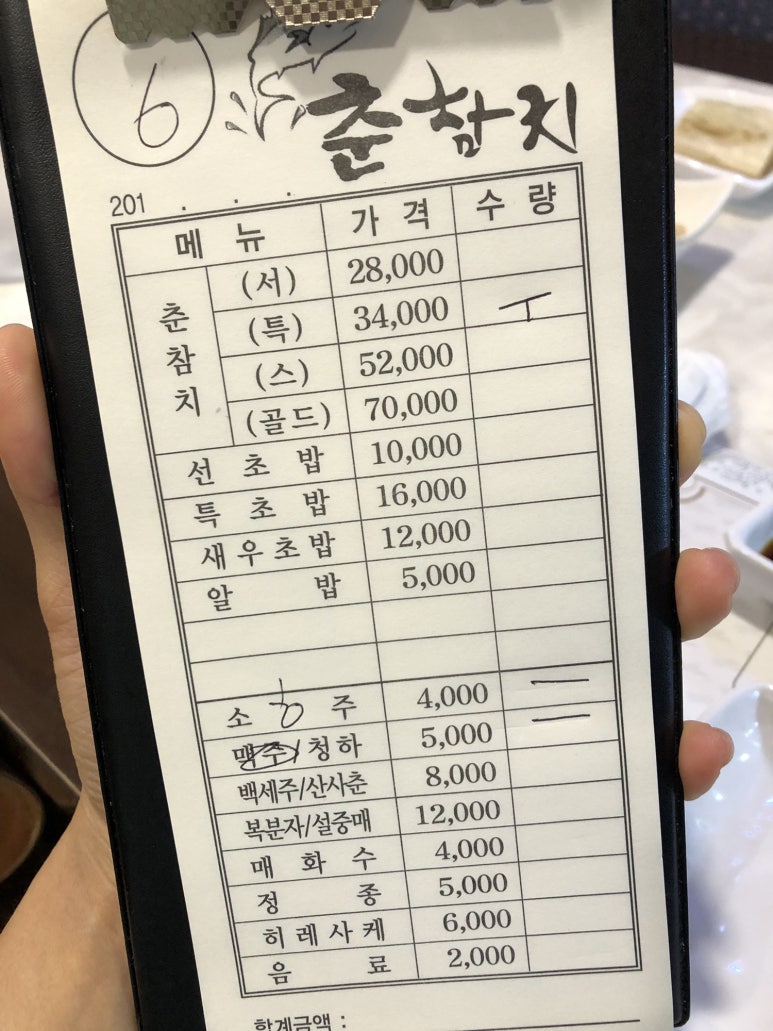 6 춘참치
201 . . .
메 뉴 가 격 수 량
춘참치 (서) 28,000
(특) 34,000 ㅜ
(스) 52,000
(골드) 70,000
선 초 밥 10,000
특 초 밥 16,000
새우초밥 12,000
알 밥 5,000
소 주 4,000 一
맥주/청하 5,000 一
백세주/산사춘 8,000
복분자/설중매 12,000
매 화 수 4,000
정 종 5,000
히레사케 6,000
음 료 2,000
합계금액 :